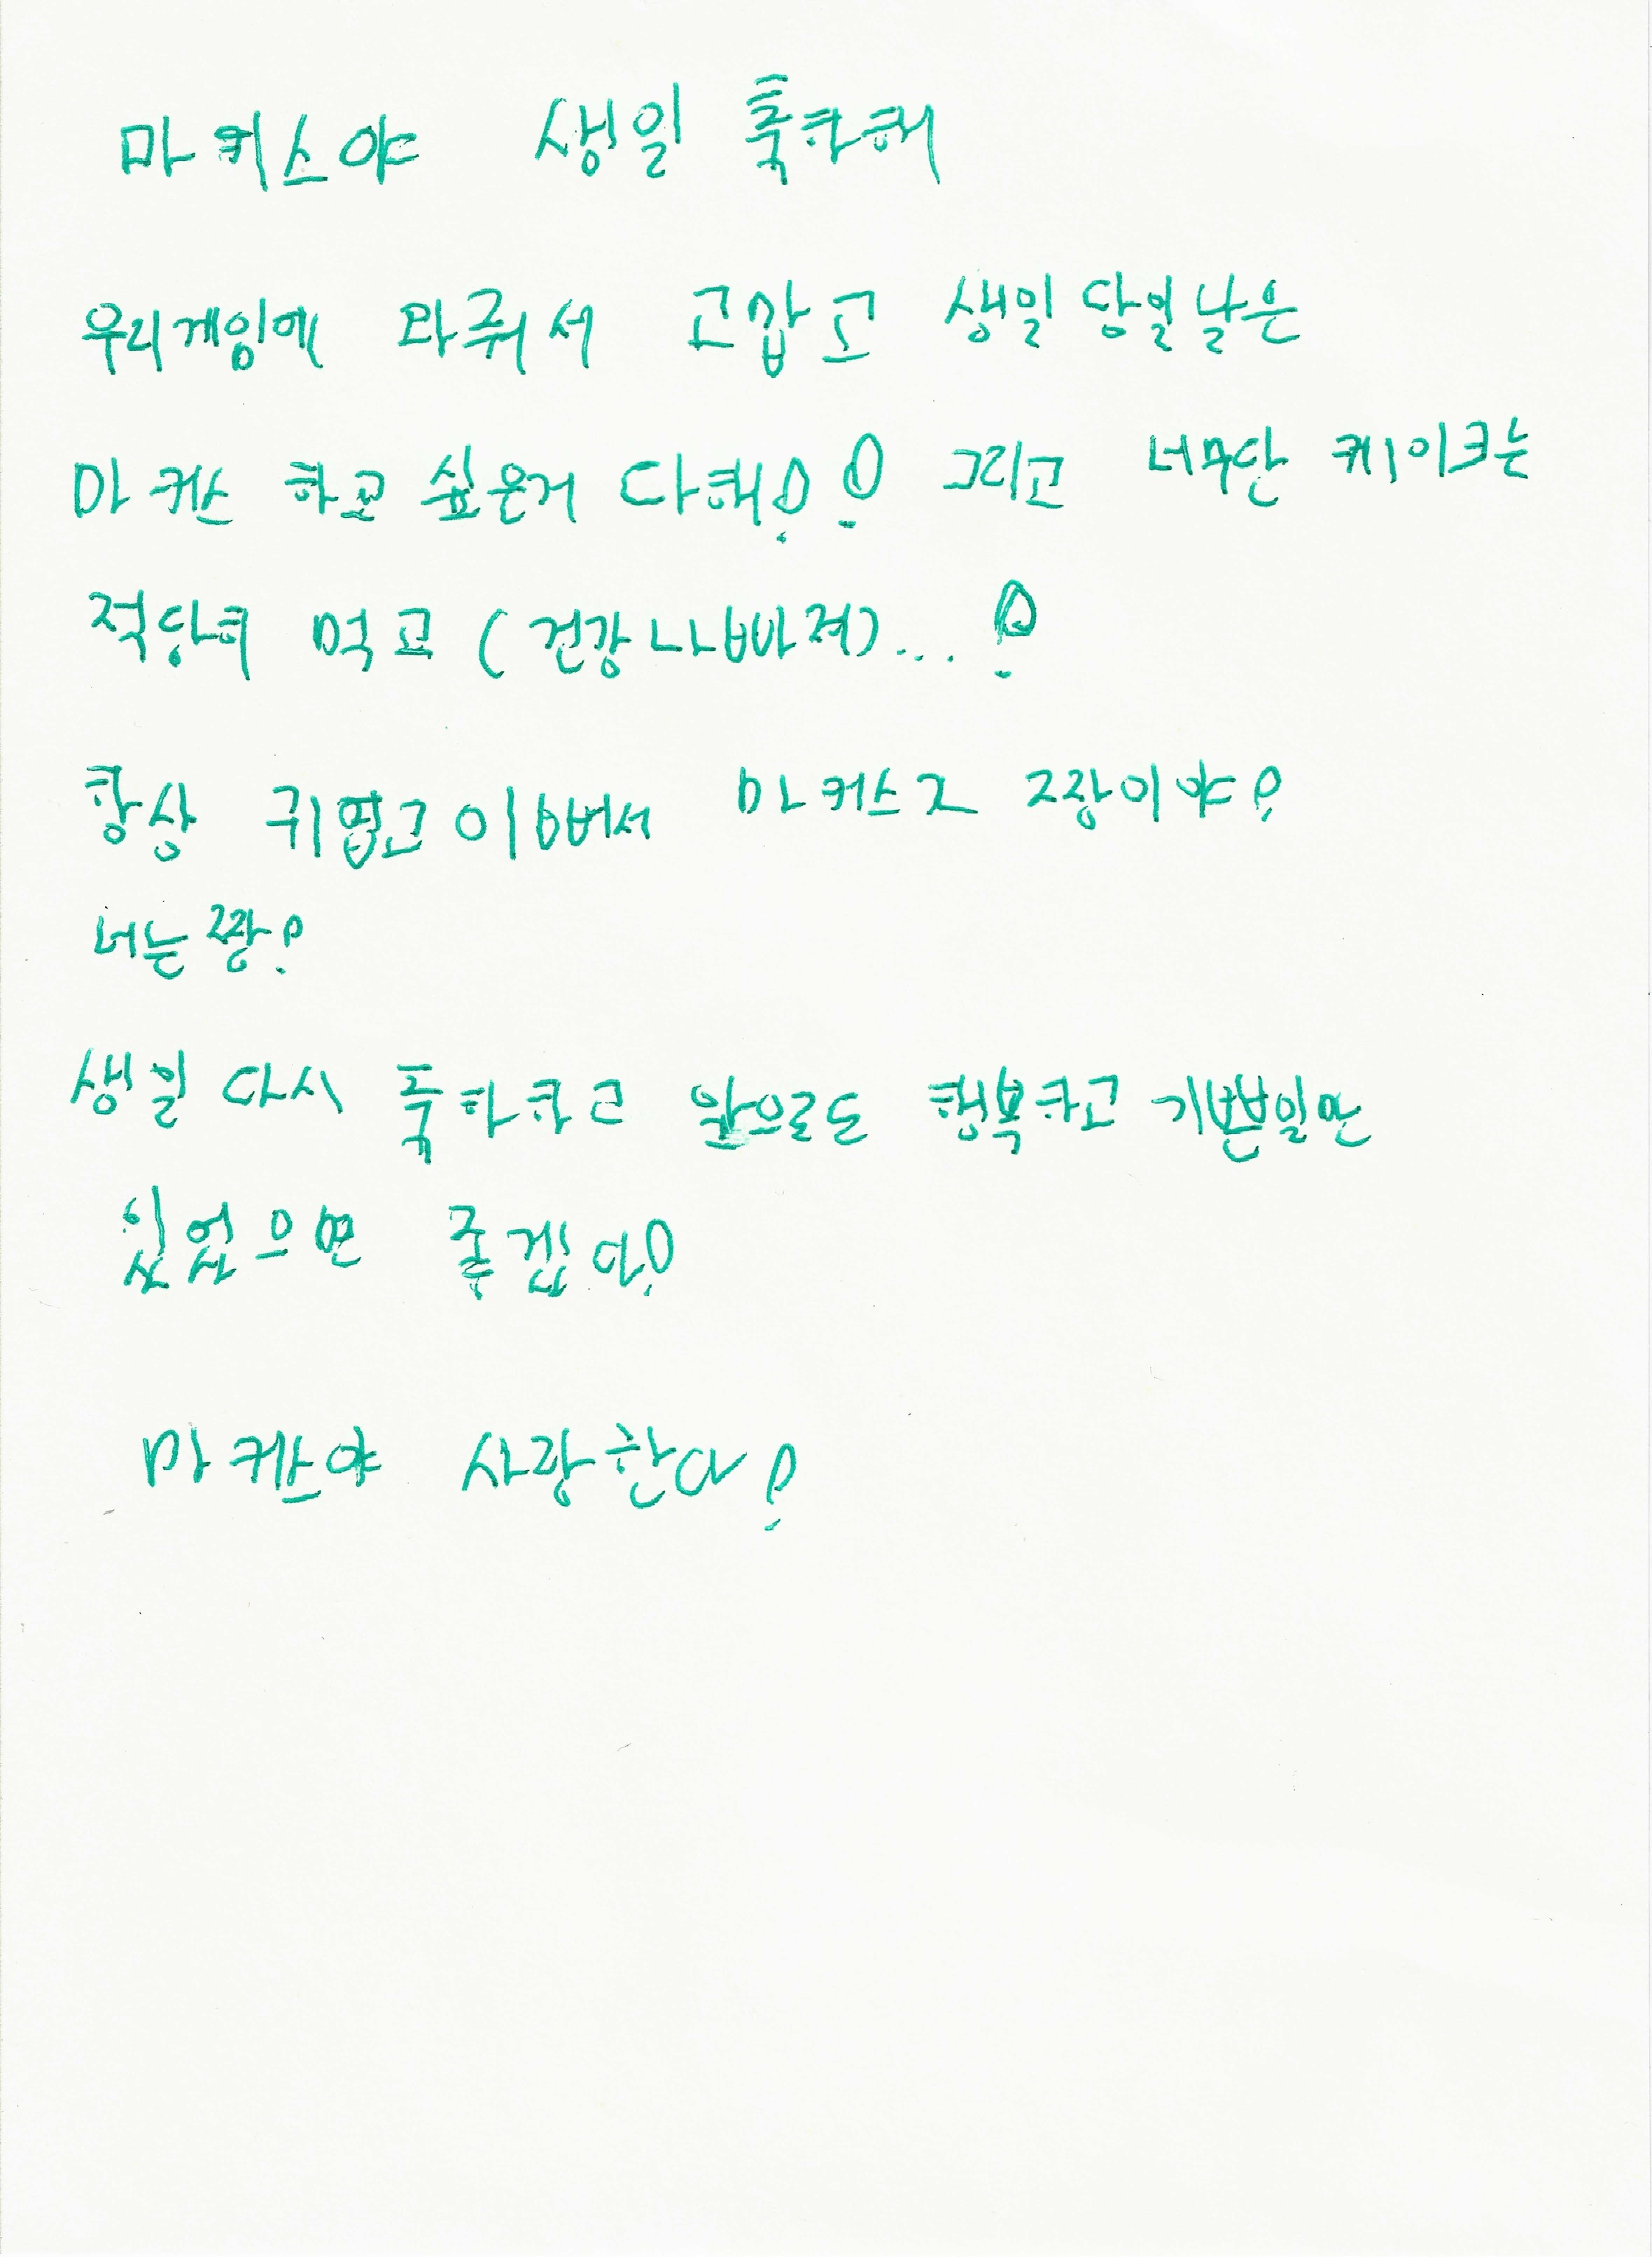 마커스야 생일 축하해
우리게임에 와줘서 고맙고 생일 당일날은
마커스 하고 싶은거 다해!! 그리고 너무단 케이크는
적당히 먹고 (건강 나빠져)...!
항상 귀엽고 이뻐서 마커스 장이야!
너는 짱!
생일 다시 축하하고 앞으로도 행복하고 기쁜일만
있었으면 좋겠다!
마커스야 사랑한다!